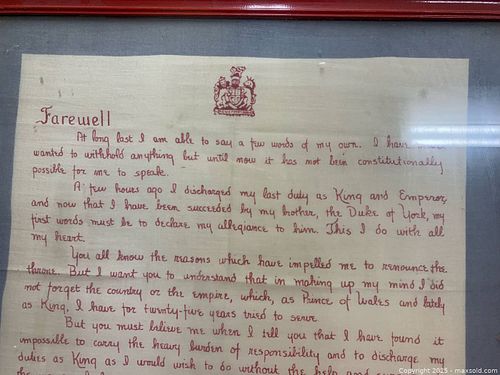 Farewell
At long last I am able to say a few words of my own. I have
wanted to withhold anything but until now it has not been constitutionally
possible for me to speak.
A few hours ago I discharged my last duty as King and Emperor,
and now that I have been succeeded by my brother, the Duke of York, my
first words must be to declare my allegiance to him. This I do with all
my heart.
You all know the reasons which have impelled me to renounce the
throne. But I want you to understand that in making up my mind I did
not forget the country or the empire, which, as Prince of Wales and lately
as King, I have for twenty-five years tried to serve.
But you must believe me when I tell you that I have found it
impossible to carry the heavy burden of responsibility and to discharge my
duties as King as I would wish to do without the help and
Copyright 2025 - maxsold.com